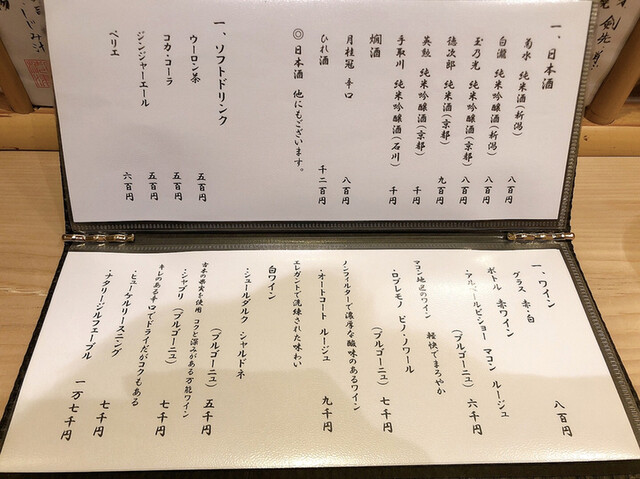 一、日本酒
菊水 純米酒(新潟) 八百円
白瀧 純米吟醸酒(新潟) 八百円
玉乃光 純米吟醸酒(京都) 八百円
徳次郎 純米酒(京都) 九百円
英勲 純米吟醸酒(京都) 千円
手取川 純米吟醸酒(石川) 千円
燗酒
月桂冠 辛口 八百円
ひれ酒 千二百円
◎ 日本酒 他にもございます。
一、ソフトドリンク
ウーロン茶 五百円
コカ・コーラ 五百円
ジンジャーエール 五百円
ペリエ 六百円
一、ワイン
グラス 赤・白 八百円
ボトル 赤ワイン
・アルベールビショー マコン ルージュ
(ブルゴーニュ) 六千円
マコン地区のワイン 軽快でまろやか
・ロブレモノ ピノ・ノワール
(ブルゴーニュ) 七千円
ノンフィルターで濃厚な酸味のあるワイン
・オートコート ルージュ 九千円
エレガントで洗練された味わい
白ワイン
・シュールダルク シャルドネ
(ブルゴーニュ) 五千円
古木の果実を使用 コクと深みがある万能ワイン
・シャブリ (ブルゴーニュ) 七千円
キレのある辛口でドライだがコクもある
・ヒューゲルリースニング 七千円
・ナタリージルフェーブル 一万七千円